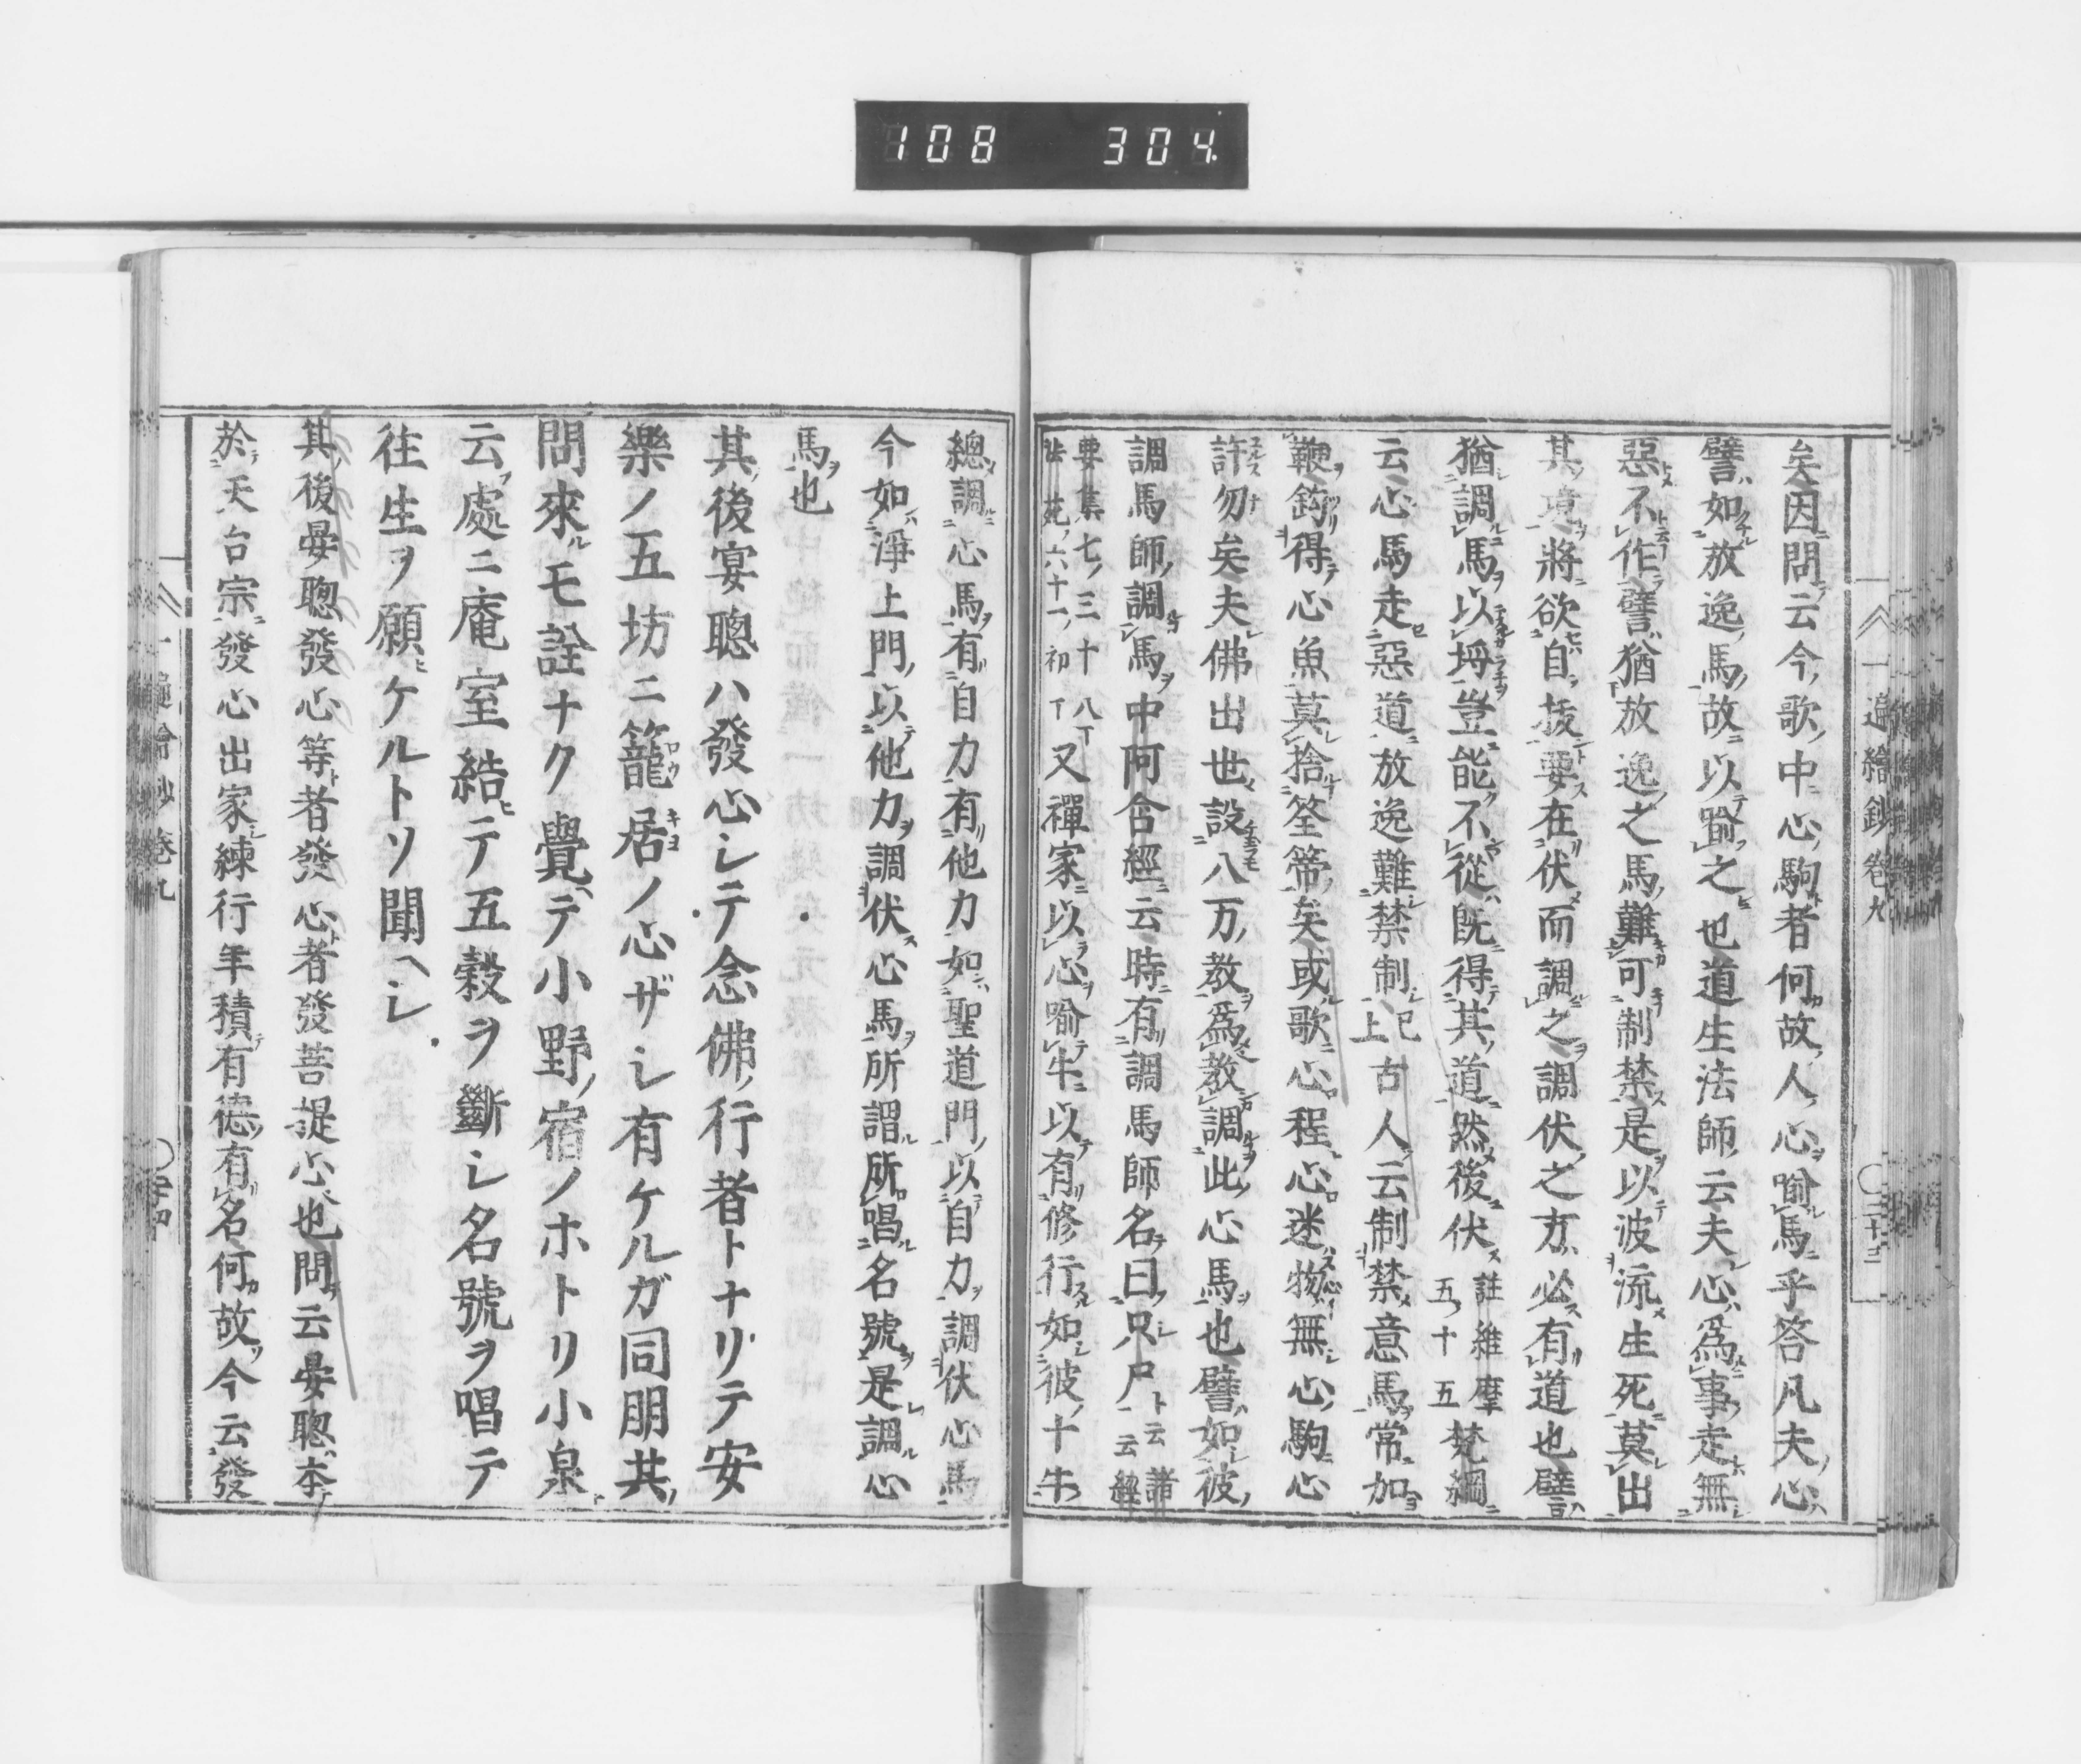 108 304
一遍繪鈔卷九 〇三十三
矣因問云今歌中心駒者何故人心喻馬乎答凡夫心
譬如放逸馬故以喻之也道生法師云夫心爲事走無
惡不作譬猶放逸之馬難可制禁是以波流生死莫出
其境將欲自拔要在伏而調之調伏之方必有道也譬
猶調馬以埒豈能不從既得其道然後伏註維摩五十五梵網
云心馬走惡道放逸難禁制上已古人云制禁意馬常加
鞭鈞得心魚莫捨筌筞矣或歌心程心迷物無心駒心
許勿矣夫佛出世設八万教爲教調此心馬也譬如彼
調馬師調馬中阿含經云時有調馬師名曰只尸ト云諸經
要集七三十八丁法苑六十一初丁又禪家以心喻牛以有修行如彼十牛
總調心馬有自力有他力如聖道門以自力調伏心馬
今如淨土門以他力調伏心馬所謂所唱名號是調心
馬也
其後宴聰ハ發心シテ念佛行者トナリテ安
樂ノ五坊ニ籠居ノ心ザシ有ケルガ同朋其
問來ルモ詮ナク覺テ小野宿ノホトリ小泉
云處ニ庵室結テ五穀ヲ斷シ名號ヲ唱テ
往生ヲ願ケルトソ聞ヘシ
其後晏聰發心等者發心者發菩提心也問云晏聰本
於天台宗發心出家練行年積有德有名何故今云發
一遍繪鈔卷九 〇三十四